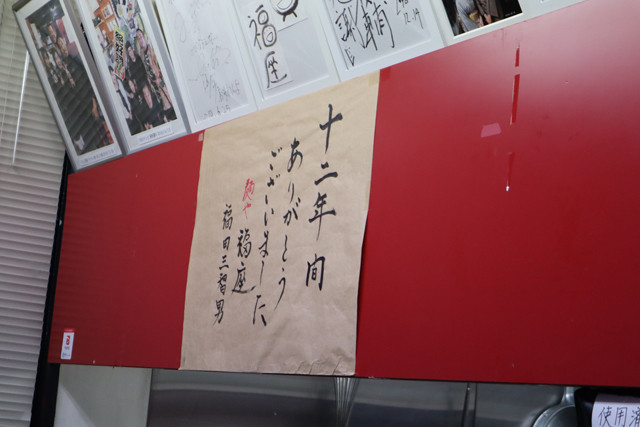 十二年間
ありがとう
ございました
麺や 福座
福田三智男
福座
使用済